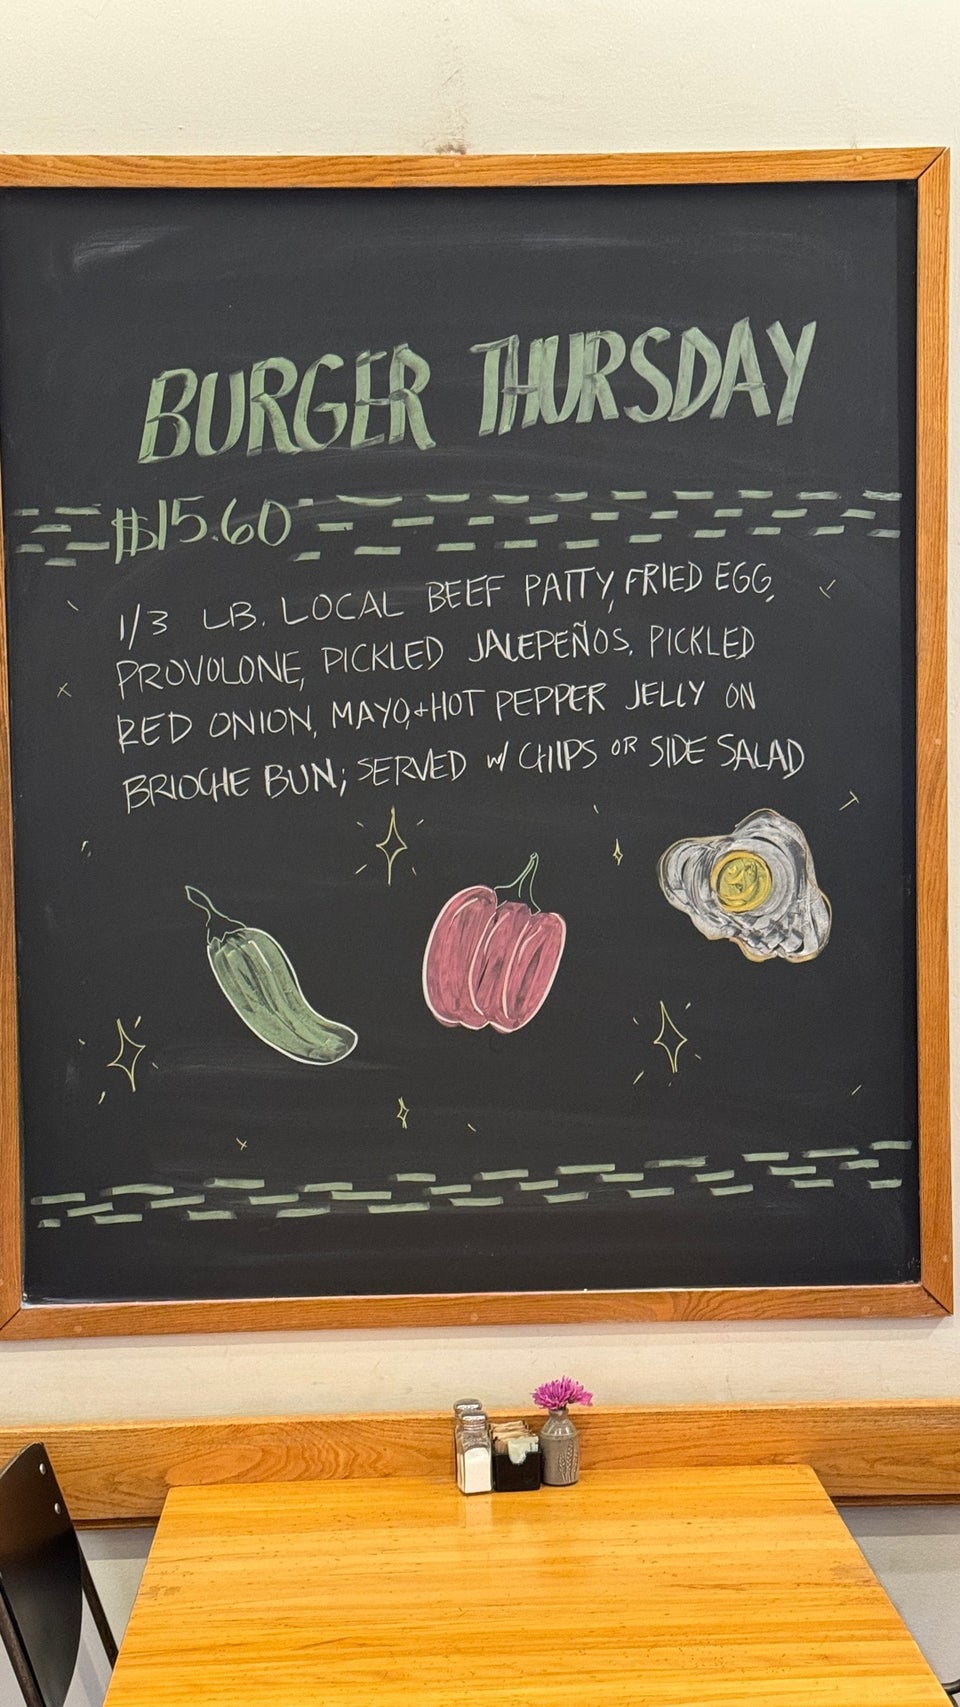 BURGER THURSDAY
$15.60
1/3 LB. LOCAL BEEF PATTY, FRIED EGG,
PROVOLONE, PICKLED JALEPEÑOS, PICKLED
RED ONION, MAYO,+HOT PEPPER JELLY ON
BRIOCHE BUN; SERVED w/ CHIPS OR SIDE SALAD